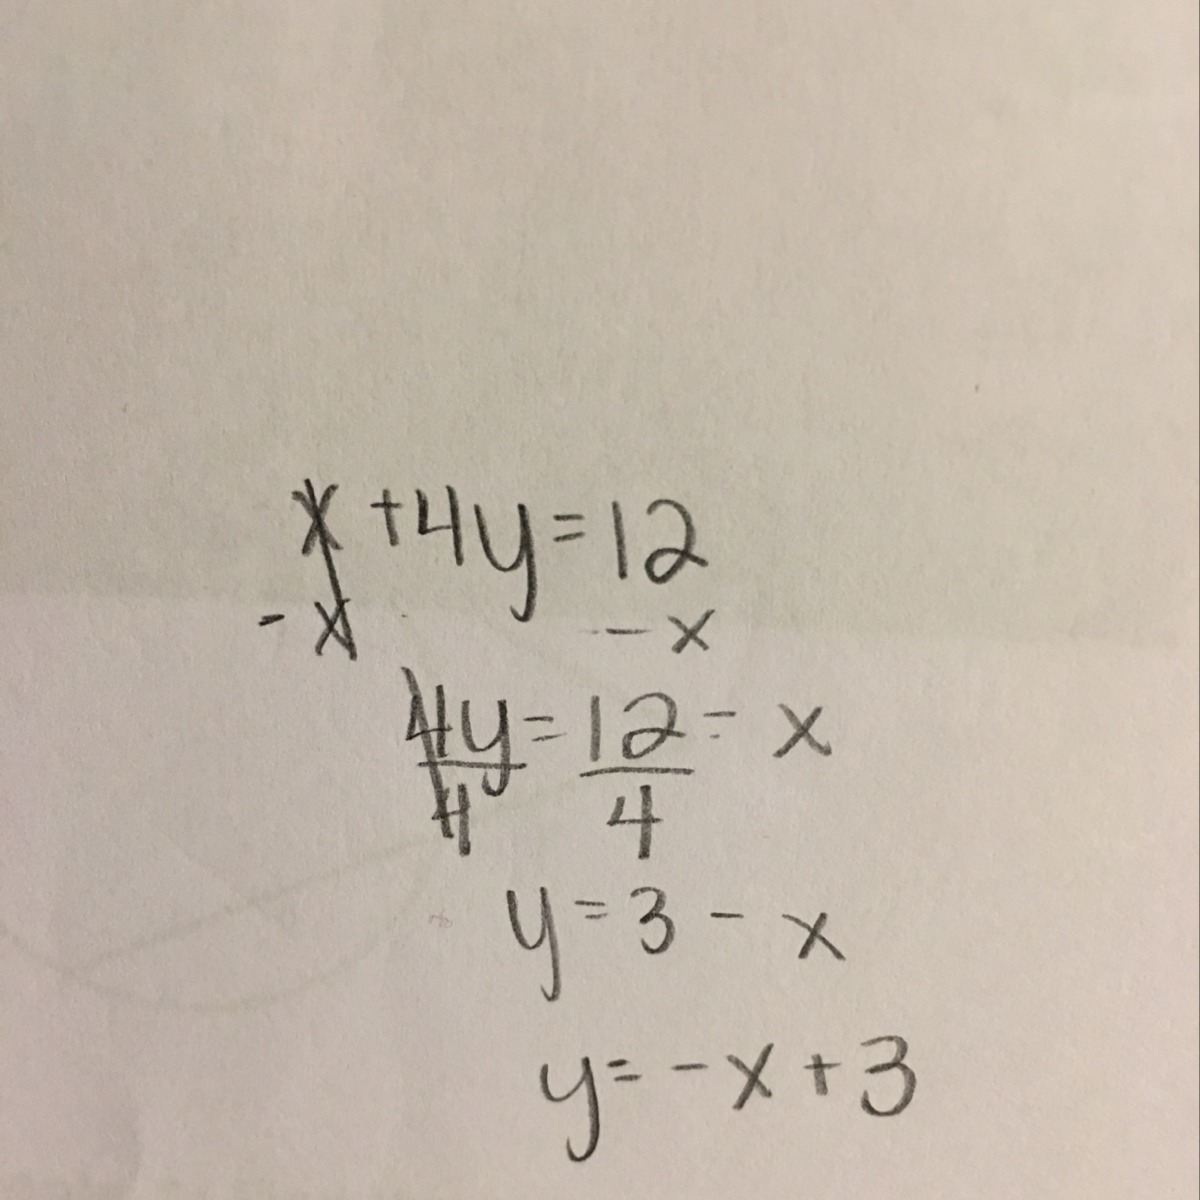 x + 4y = 12
- x - x
4y = 12 - x
4 4
y = 3 - x
y = - x + 3